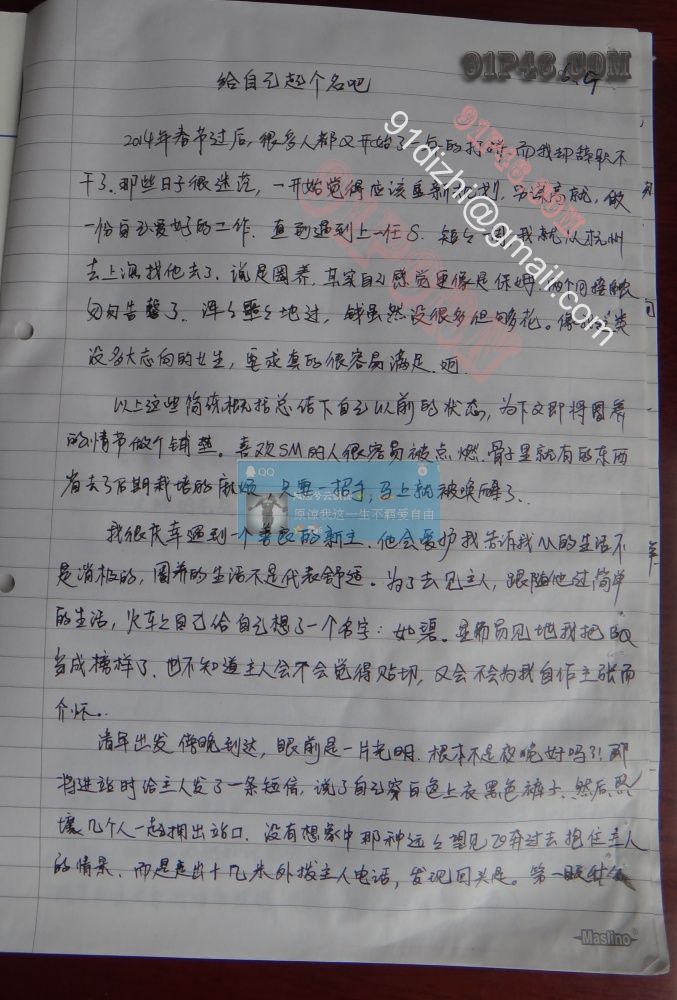 91P46.COM
给自己起个名吧
6.9
2014年春节过后,很多人都又开始了一点的打拼,而我却辞职不
干了.那些日子很迷茫,一开始觉得应该重新规划,另谋高就,做
一份自己爱好的工作.直到遇到上一任S.短短一周,我就从杭州
去上海找他去了.说是圈养,其实自己感觉更像是保姆.两个月接触
匆匆告罄了.浑浑噩噩地过,钱虽然没很多但够花。像我这类
没多大志向的女生,要求真的很容易满足.呵.
以上这些简该概括总结下自己以前的状态,为下文即将圈养
的情节做个铺垫。喜欢SM的人很容易被点燃.骨子里就有的东西
省去了后期栽培的麻烦.只要一招手,马上就被唤醒了.
我很庆幸遇到一个善良的新主.他会爱护我告诉我M的生活不
是消极的,圈养的生活不是代表舒适。为了去见主人,跟随他过简单
的生活,火车上自己给自己想了一个名字:如碧.显而易见地我把
当成榜样了.也不知道主人会不会觉得贴切,又会不会为我自作主张而
介怀.
清早出发傍晚到达,眼前是一片光明.根本不是夜晚好吗?!那
将进站时给主人发了一条短信,说了自己穿白色上衣黑色裤子.然后
几个人一起拥出站口.没有想象中那种远远望见飞奔过去抱住主人
的情景.而是走出十几米外拨主人电话,发现回头是。第一眼
91dizhi@gmail.com
91P46.COM
QQ
原谅我这一生不羁爱自由
Maslino®